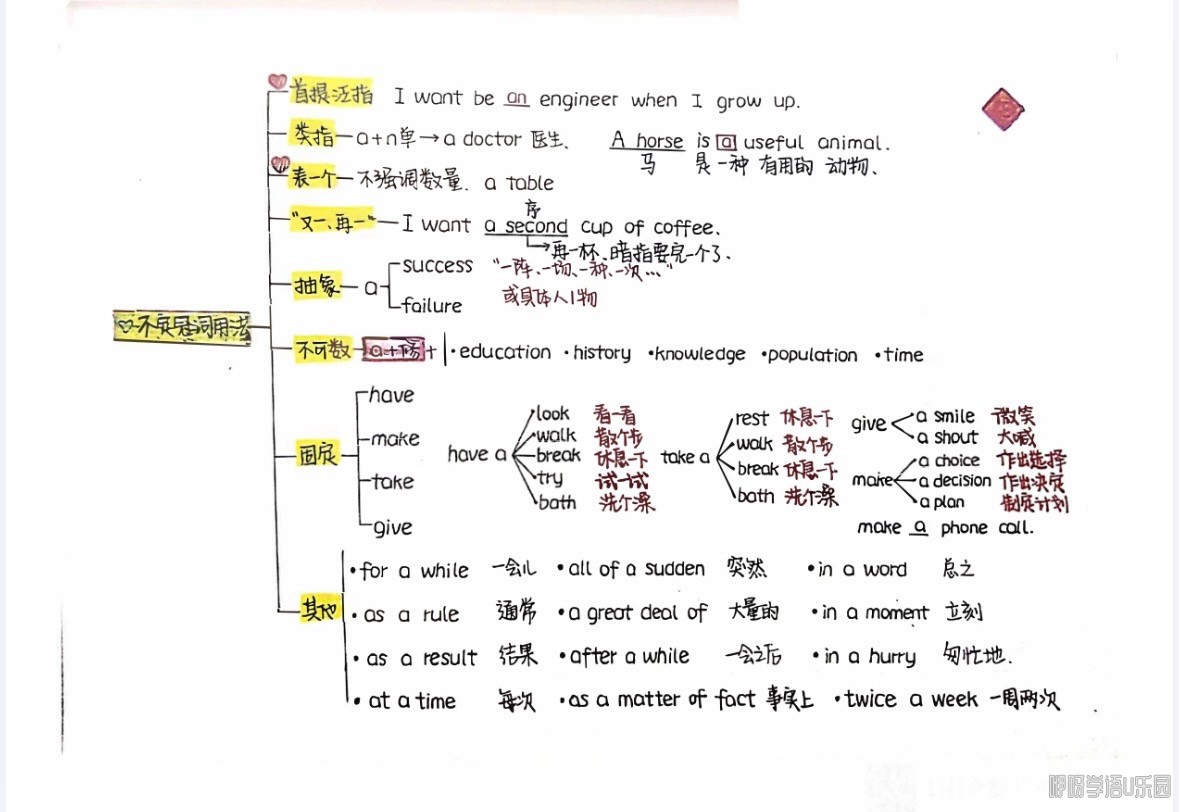 首提泛指 I want be an engineer when I grow up.
类指 a+n单→a doctor 医生、 A horse is a useful animal.
马 是一种 有用的 动物、
表一个 不强调数量. a table
序
"又一、再一" I want a second cup of coffee、
再一杯、暗指要完一个了、
抽象 a success "一阵、一场、一种、一次…"
failure 或具体人/物
♡不定冠词用法
不可数 a+修+ ·education ·history ·knowledge ·population ·time
固定
have
make
take
give
have a
look 看一看
walk 散个步
break 休息一下
try 试一试
bath 洗个澡
take a
rest 休息一下
walk 散个步
break 休息一下
bath 洗个澡
give
a smile 微笑
a shout 大喊
make
a choice 作出选择
a decision 作出决定
a plan 制定计划
make a phone call.
其他
·for a while 一会儿 ·all of a sudden 突然 ·in a word 总之
·as a rule 通常 ·a great deal of 大量的 ·in a moment 立刻
·as a result 结果 ·after a while 一会之后 ·in a hurry 匆忙地.
·at a time 每次 ·as a matter of fact 事实上 ·twice a week 一周两次
咿呀学语U乐园